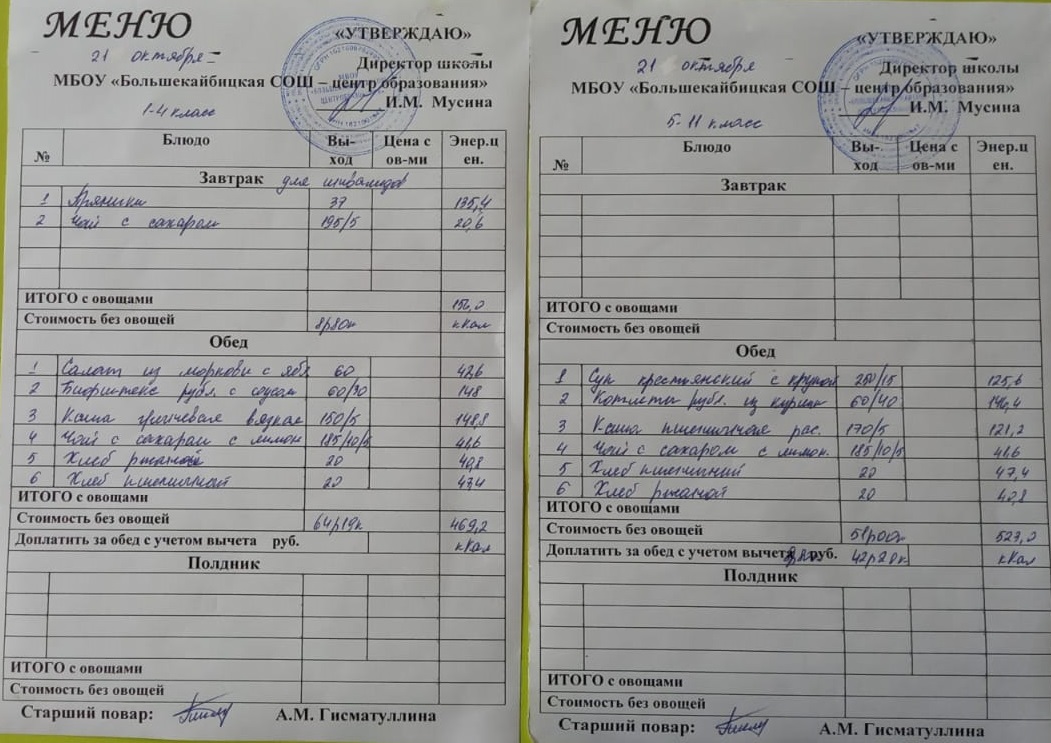 МЕНЮ
«УТВЕРЖДАЮ»
21 октября
Директор школы
МБОУ «Большекайбицкая СОШ – центр образования»
И.М. Мусина
1-4 класс
№ Блюдо Вы-ход Цена с ов-ми Энер.ц ен.
Завтрак для инвалидов
1 Пряники 37 135,4
2 Чай с сахаром 195/5 20,6
ИТОГО с овощами 156,0
Стоимость без овощей 8р80к кКал
Обед
1 Салат из моркови с ябл 60 42,6
2 Бифштекс рубл. с соусом 60/30 148
3 Каша гречневая вязкая 150/5 148,8
4 Чай с сахаром с лимон 185/10/5 41,6
5 Хлеб ржаной 20 40,8
6 Хлеб пшеничной 20 47,4
ИТОГО с овощами
Стоимость без овощей 64р19к 469,2
Доплатить за обед с учетом вычета руб. кКал
Полдник
ИТОГО с овощами
Стоимость без овощей
Старший повар: А.М. Гисматуллина
МЕНЮ
«УТВЕРЖДАЮ»
21 октября
Директор школы
МБОУ «Большекайбицкая СОШ – центр образования»
И.М. Мусина
5-11 класс
№ Блюдо Вы-ход Цена с ов-ми Энер.ц ен.
Завтрак
ИТОГО с овощами
Стоимость без овощей
Обед
1 Суп крестьянский с крупой 250/15 125,6
2 Котлеты рубл. из курицы 60/40 146,4
3 Каша пшеничная рас. 170/5 121,2
4 Чай с сахаром с лимон. 185/10/5 41,6
5 Хлеб пшеничний 20 47,4
6 Хлеб ржаной 20 40,8
ИТОГО с овощами
Стоимость без овощей 51р00к 523,0
Доплатить за обед с учетом вычета руб. 42р20к. кКал
Полдник
ИТОГО с овощами
Стоимость без овощей
Старший повар: А.М. Гисматуллина